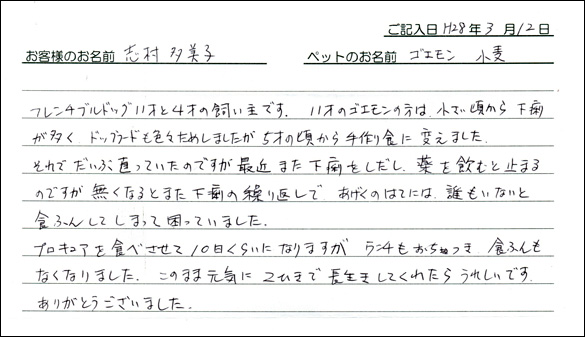 ご記入日 H28年 3月12日
お客様のお名前 志村 多美子 ペットのお名前 ゴエモン 小麦
フレンチブルドッグ11才と4才の飼い主です. 11才のゴエモンの方は、小さい頃から下痢
が多く、ドッグフードも色々ためしましたが5才の頃から手作り食に変えました.
それでだいぶ直っていたのですが最近また下痢をしだし、薬を飲むと止まる
のですが無くなるとまた下痢の繰り返しで、あげくのはてには、誰もいないと
食ふんしてしまって困っていました.
プロキュアを食べさせて10日くらいになりますがウンチもおちつき、食ふんも
なくなりました. このまま元気に2ひきで長生きしてくれたらうれしいです.
ありがとうございました.